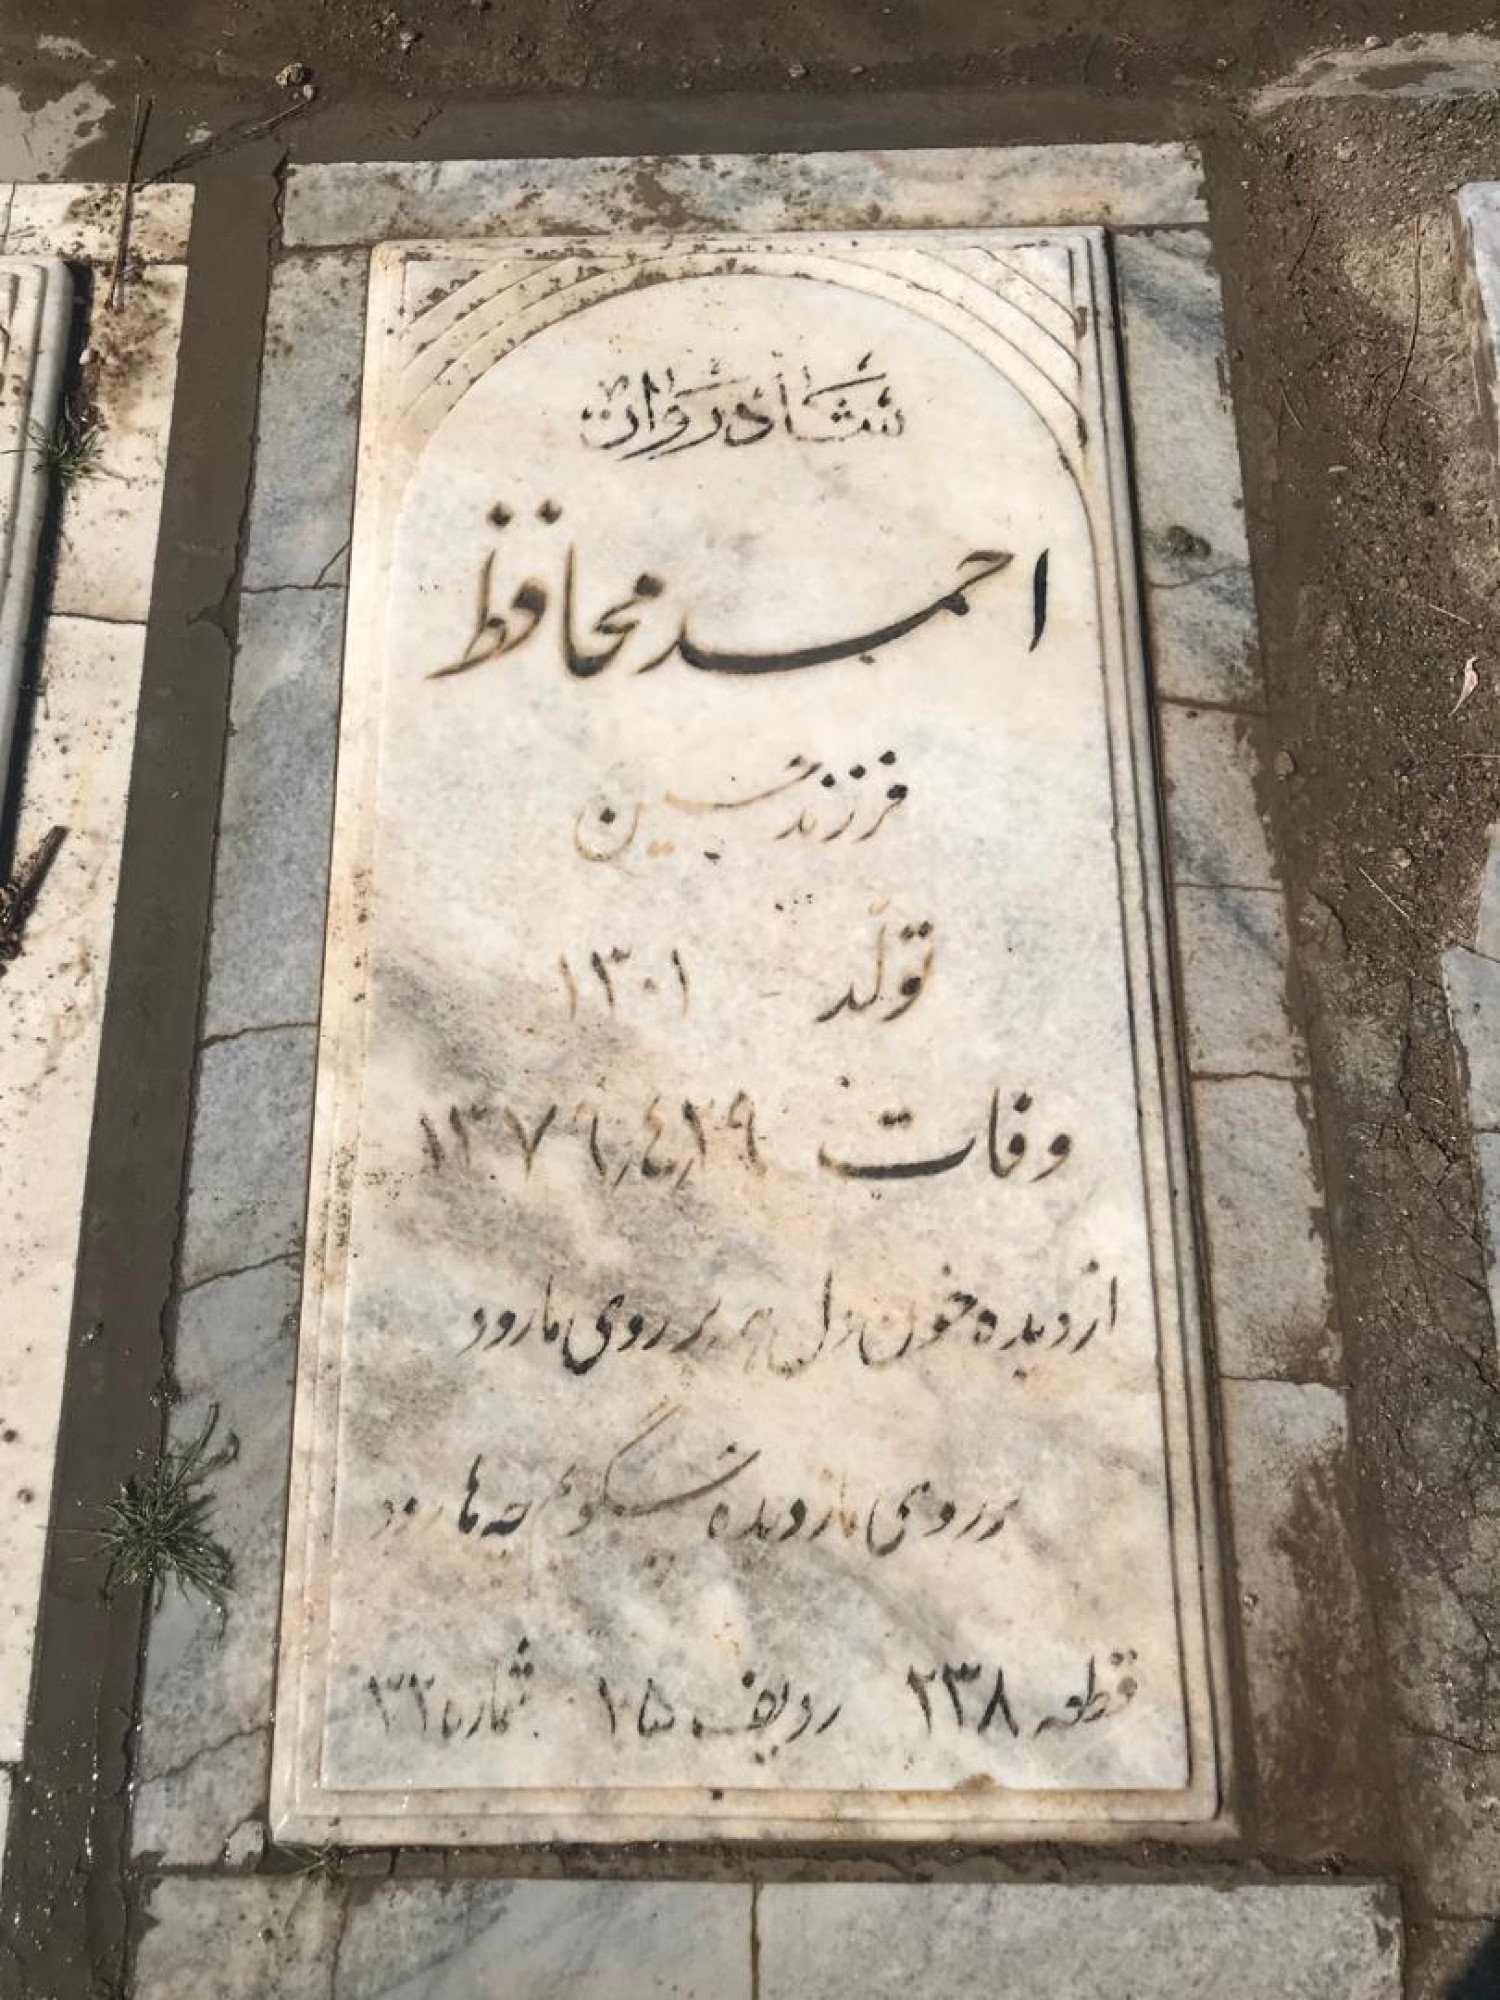 شادروان
احمد محافظ
فرزند حسین
تولّد ۱۳۰۱
وفات ۱۳۷۹٫۴٫۲۹
از دیده خون دل همه بر روی ما رود
بر روی ما ز دیده نگویم چه ها رود
قطعه ۲۳۸ ردیف ۲۵ شماره ۳۲